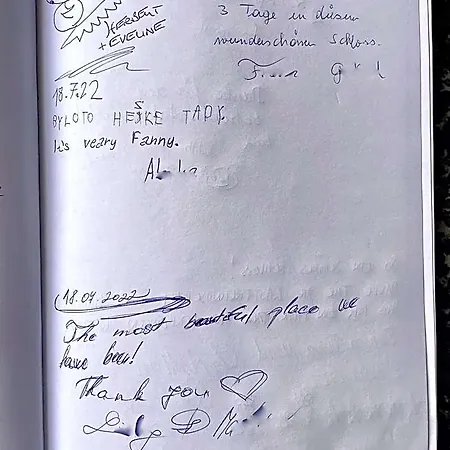 HERBERT
+ EVELINE
3 Tage in diesem
wunderschönen Schloss.
18.7.22
BYLOTO HEŠKE TADY.
It's veary Fanny.
(18.07.2022)
The most beautiful place we
have been!
Thank you